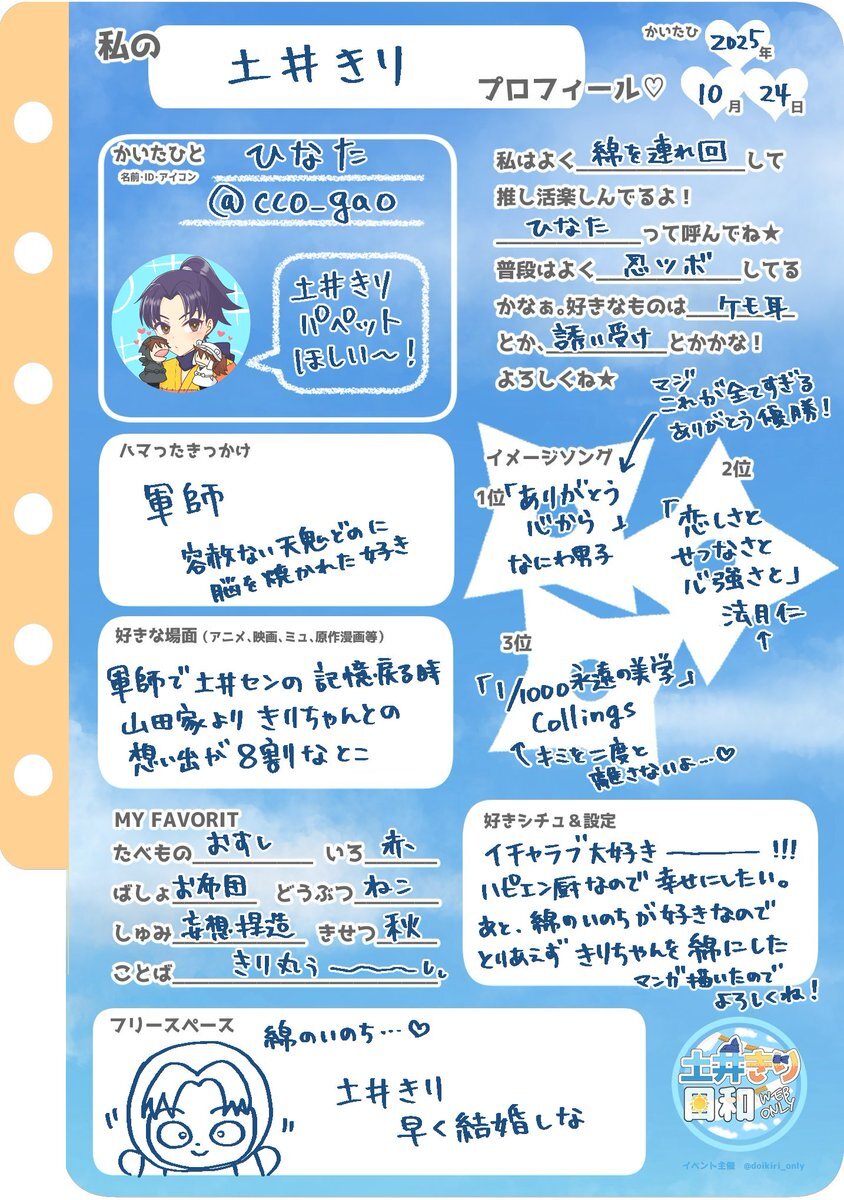 私の
土井きり
プロフィール♡
かいたひ
2025年
10月 24日
かいたひと
名前・ID・アイコン
ひなた
@cco_gao
土井きり
パペット
ほしい〜！
私はよく綿を連れ回して
推し活楽しんでるよ！
ひなたって呼んでね★
普段はよく忍ツボしてる
かなぁ。好きなものはケモ耳
とか、誘い受けとかかな！
よろしくね★
マジ
これが全てすぎる
ありがとう優勝！
ハマったきっかけ
軍師
容赦ない天鬼どのに
脳を焼かれた好き
イメージソング
1位
「ありがとう
心から」
なにわ男子
2位
「恋しさと
せつなさと
心強さと」
法月仁
↑
3位
「1/1000永遠の美学」
Collings
↑キミを二度と
離さないよ…♡
好きな場面（アニメ、映画、ミュ、原作漫画等）
軍師で土井センの記憶戻る時
山田家よりきりちゃんとの
想い出が8割なとこ
MY FAVORIT
たべもの おすし いろ 赤
ばしょ お布団 どうぶつ ねこ
しゅみ 妄想・捏造 きせつ 秋
ことば きり丸ぅ〜〜〜し
好きシチュ＆設定
イチャラブ大好き――――!!!
ハピエン厨なので幸せにしたい。
あと、綿のいのちが好きなので
とりあえずきりちゃんを綿にした
マンガ描いたので
よろしくね！
フリースペース
綿のいのち…♡
土井きり
早く結婚しな
土井きり
日和
WEB
ONLY
イベント主催 @doikiri_only